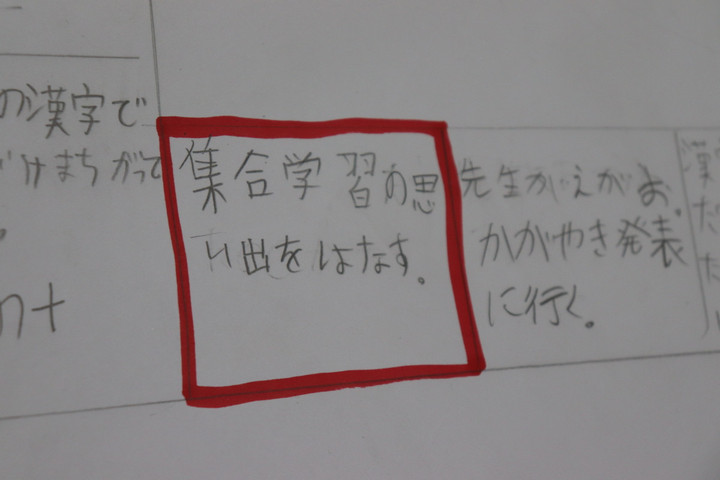 の漢字で
けまちがって
集合学習の思
い出をはなす。
先生がえがお。
かがやき発表
に行く。